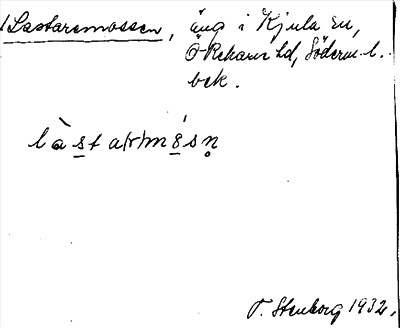 Lastaremossen, äng i Kjula sn,
Ö Rekarne hd, Söderm. l.
bek.
làsta(r)mósn
T. Stenborg 1932.